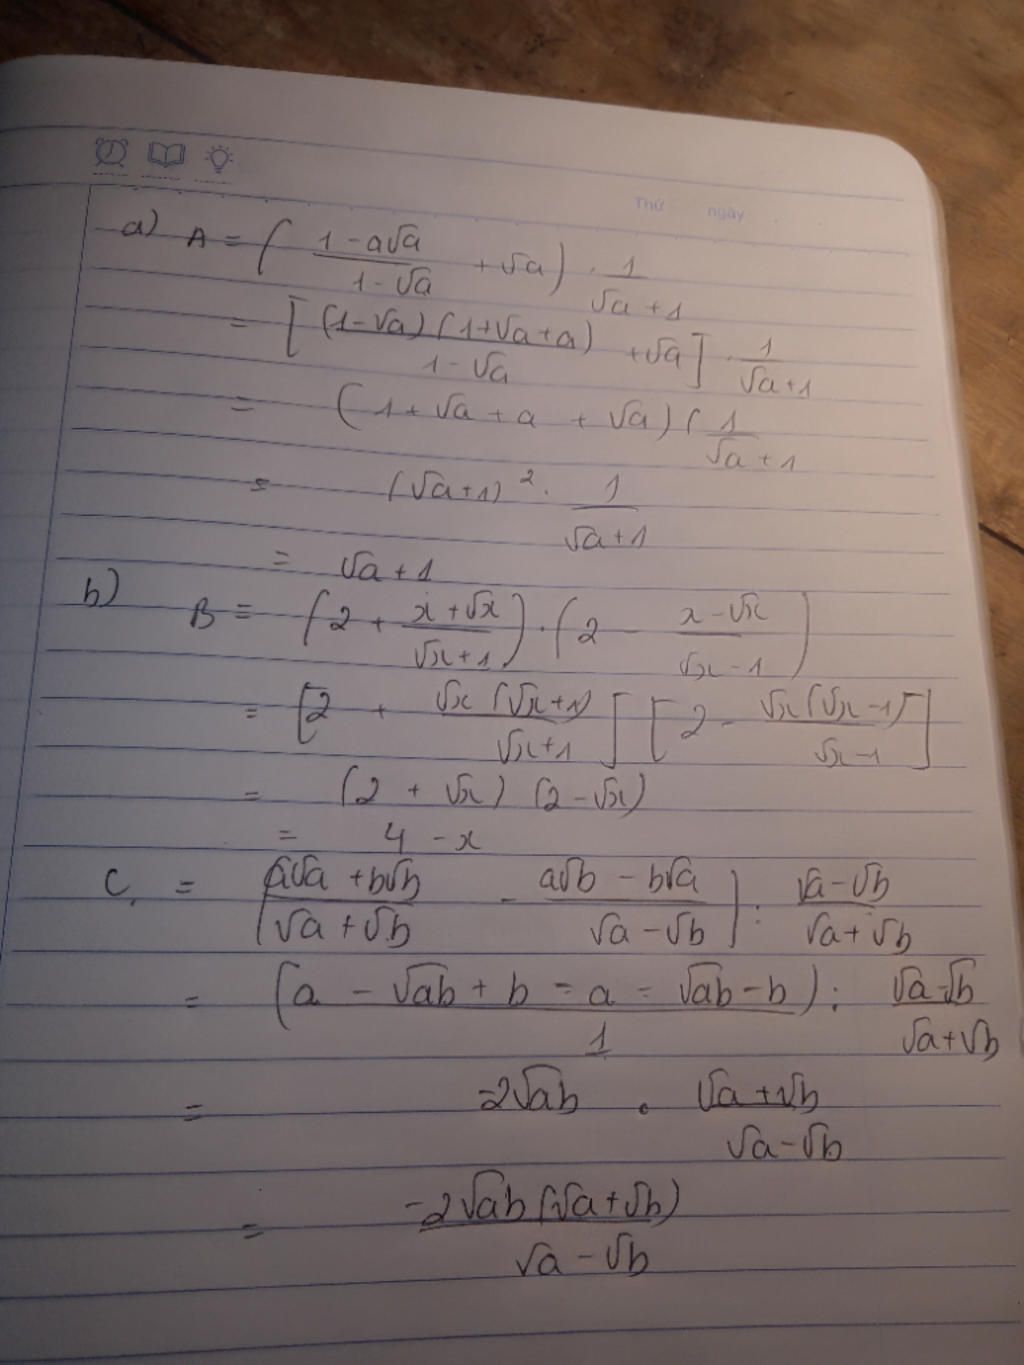 Thứ ngày
a) A = ( (1 - a√a)/(1 - √a) + √a ) . 1/(√a + 1)
= [ (1-√a)(1+√a+a)/(1-√a) + √a ] . 1/(√a+1)
= (1 + √a + a + √a) ( 1/(√a + 1)
= (√a+1)² . 1/(√a+1)
= √a + 1
b) B = (2 + (x + √x)/(√x + 1)) . (2 - (x - √x)/(√x - 1))
= [2 + √x(√x+1)/(√x+1)] [2 - √x(√x-1)/(√x-1)]
= (2 + √x) (2 - √x)
= 4 - x
C, = [(a√a + b√b)/(√a + √b) - (a√b - b√a)/(√a - √b)] : (√a - √b)/(√a + √b)
= ((a - √ab + b - a - √ab - b)/1) : (√a - √b)/(√a + √b)
= -2√ab . (√a + √b)/(√a - √b)
= -2√ab(√a + √b)/(√a - √b)